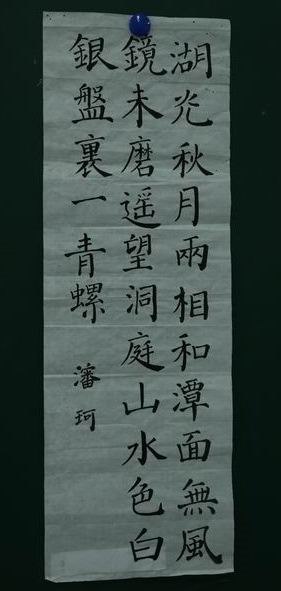 湖光秋月兩相和潭面無風
鏡未磨遥望洞庭山水色白
銀盤裏一青螺
瀋珂